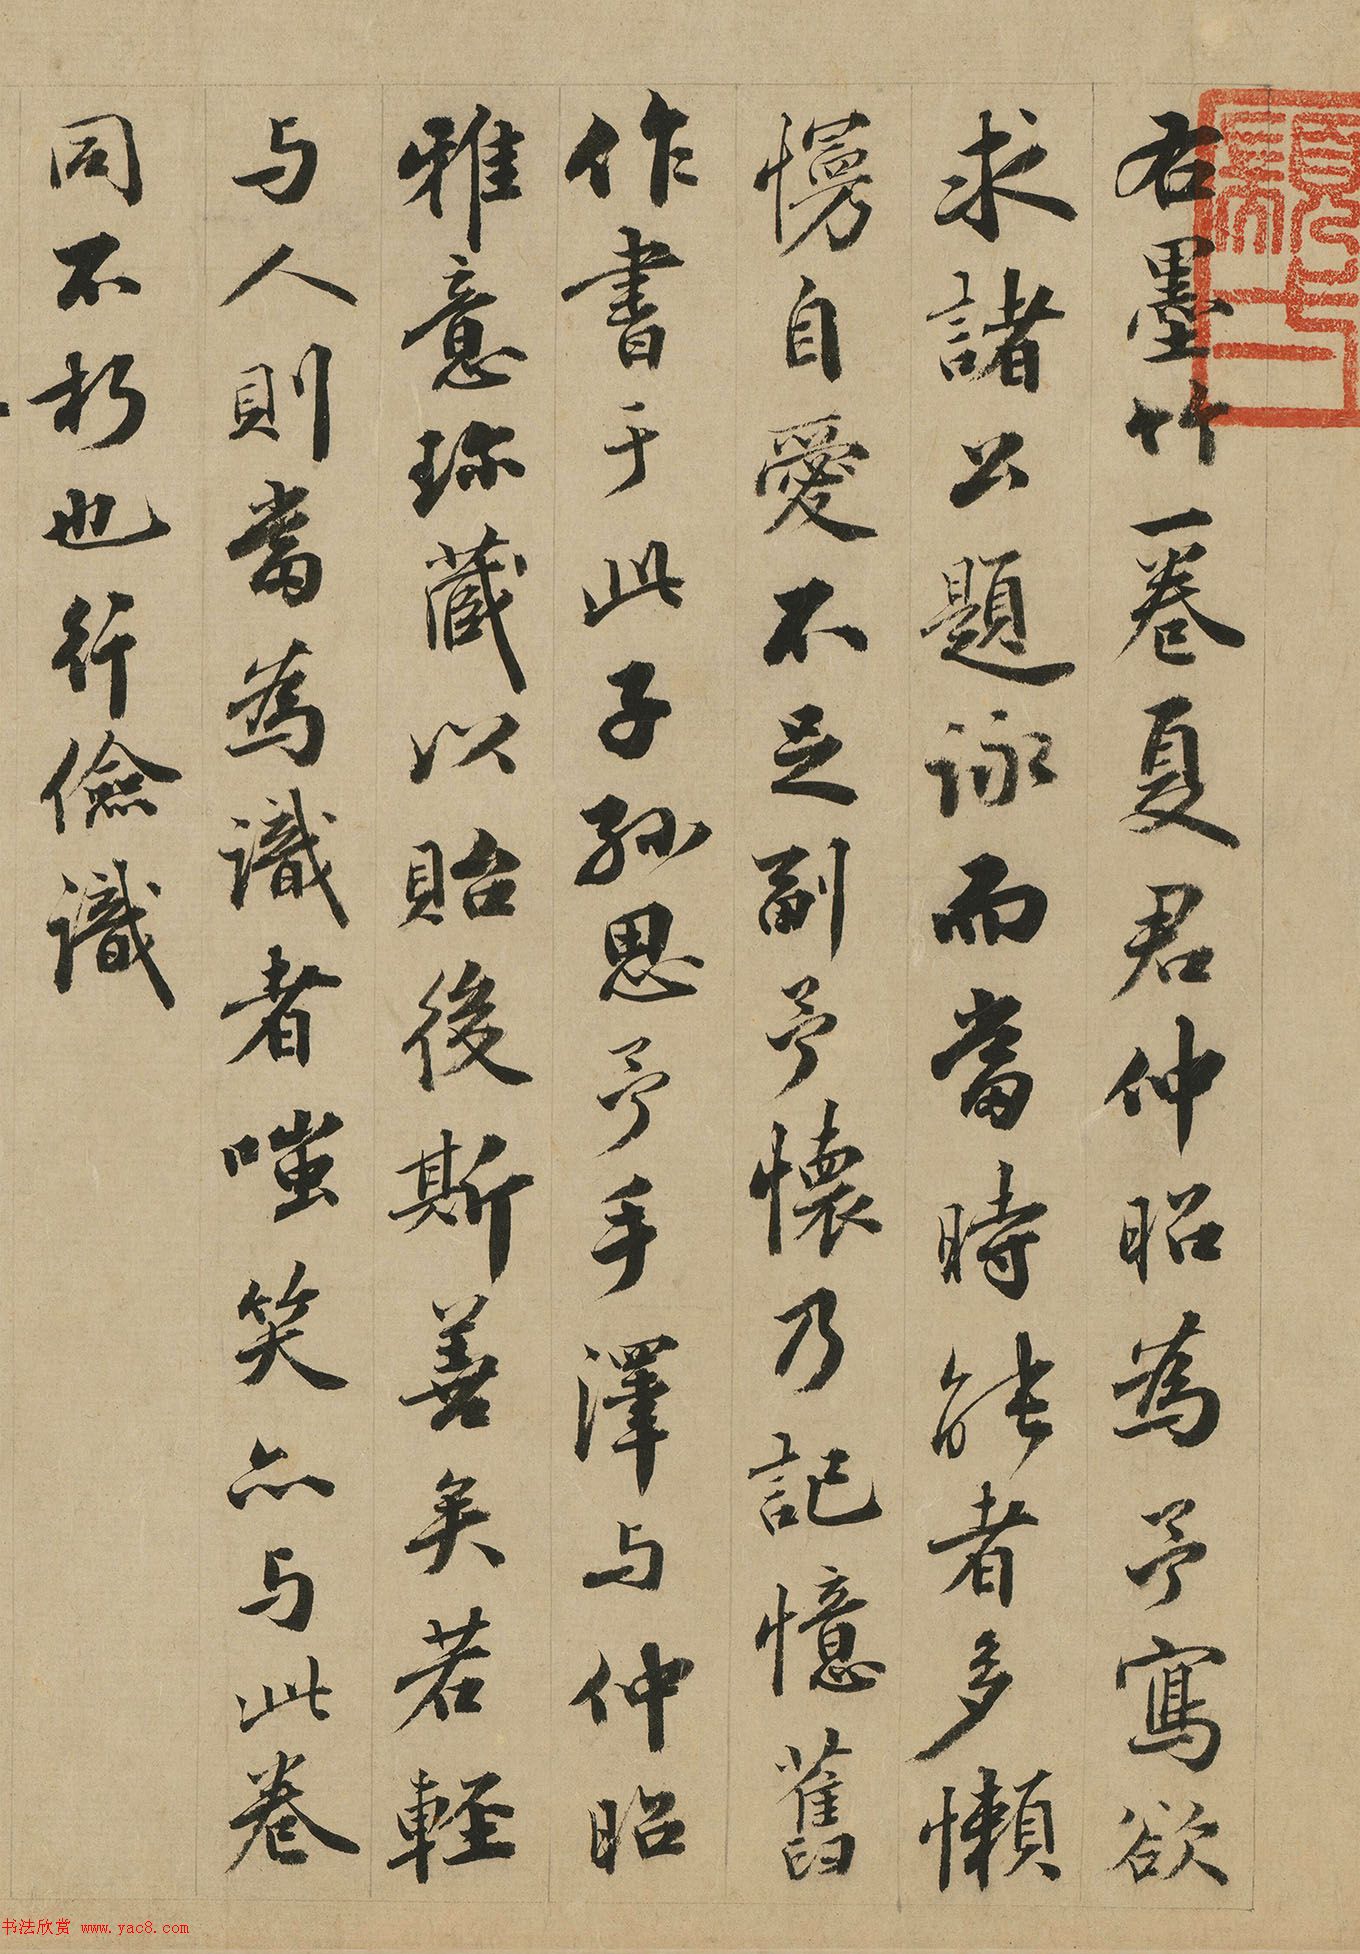 右墨竹一卷夏君仲昭為予寫欲
求諸公題詠而當時能者多懶
慢自愛不足副予懷乃記憶舊
作書于此子孫思予手澤与仲昭
雅意珎藏以貽後斯善矣若輕
与人則當為識者嗤笑亦与此卷
同不朽也行儉識
书法欣赏 www.yac8.com